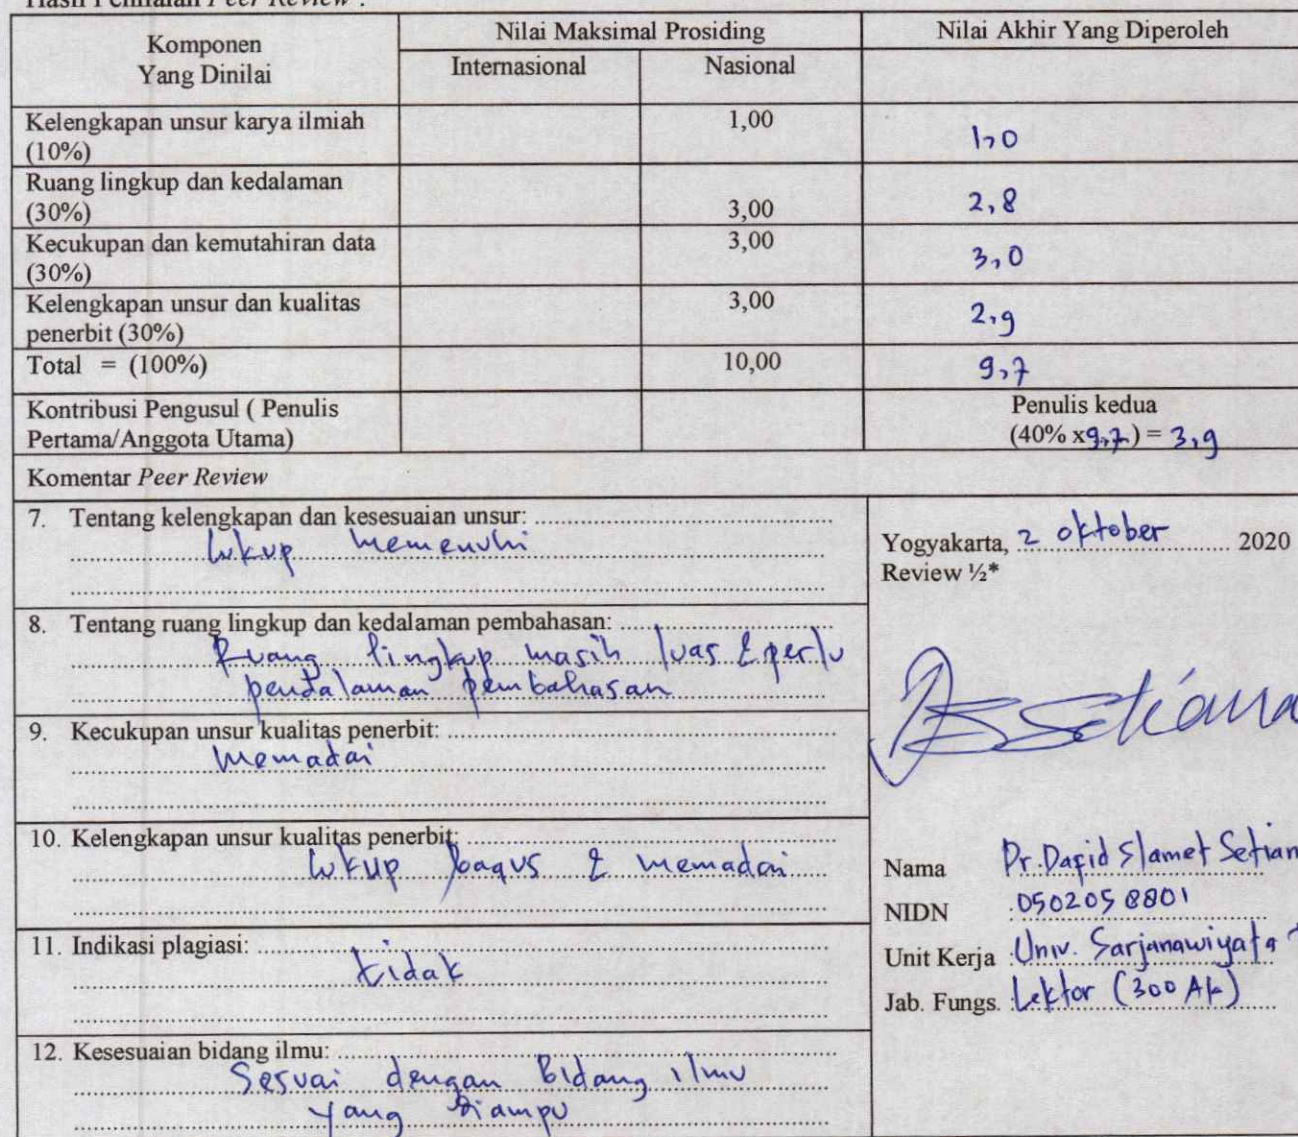 Hasil Penilaian Peer Review :
Komponen
Yang Dinilai
Nilai Maksimal Prosiding
Nilai Akhir Yang Diperoleh
Internasional
Nasional
Kelengkapan unsur karya ilmiah
(10%)
1,00
1,0
Ruang lingkup dan kedalaman
(30%)
3,00
2,8
Kecukupan dan kemutahiran data
(30%)
3,00
3,0
Kelengkapan unsur dan kualitas
penerbit (30%)
3,00
2,9
Total = (100%)
10,00
9,7
Kontribusi Pengusul ( Penulis
Pertama/Anggota Utama)
Penulis kedua
(40% x9,7.) = 3,9
Komentar Peer Review
7. Tentang kelengkapan dan kesesuaian unsur:
Cukup memenuhi
8. Tentang ruang lingkup dan kedalaman pembahasan:
Ruang lingkup masih luas & perlu
pendalaman pembahasan
9. Kecukupan unsur kualitas penerbit:
Memadai
10. Kelengkapan unsur kualitas penerbit:
Cukup bagus & memadai
11. Indikasi plagiasi:
tidak
12. Kesesuaian bidang ilmu:
Sesuai dengan Bidang ilmu
yang diampu
Yogyakarta, 2 oktober 2020
Review ½*
Setiana
Nama Dr. Dafid Slamet Setian
NIDN : 0502058801
Unit Kerja : Univ. Sarjanawiyata
Jab. Fungs. : Lektor (300 Ak)